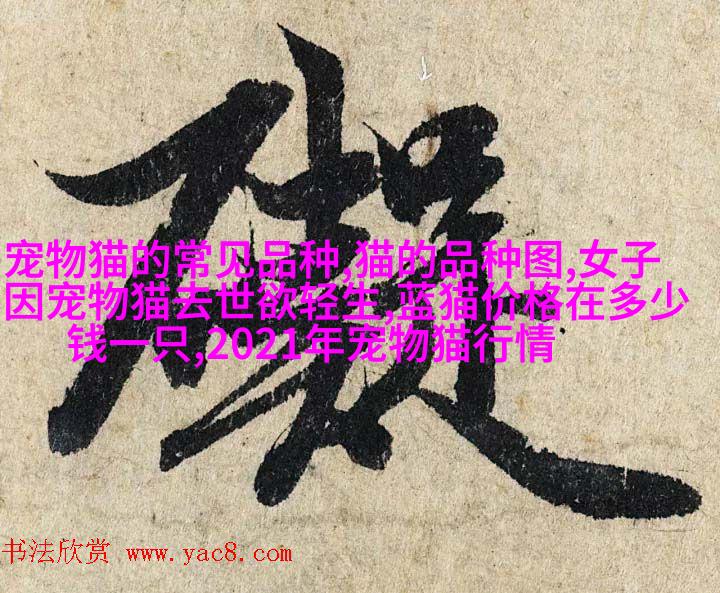 宠物猫的常见品种,猫的品种图,女子
因宠物猫去世欲轻生,蓝猫价格在多少
钱一只,2021年宠物猫行情
书法欣赏 www.yac8.com